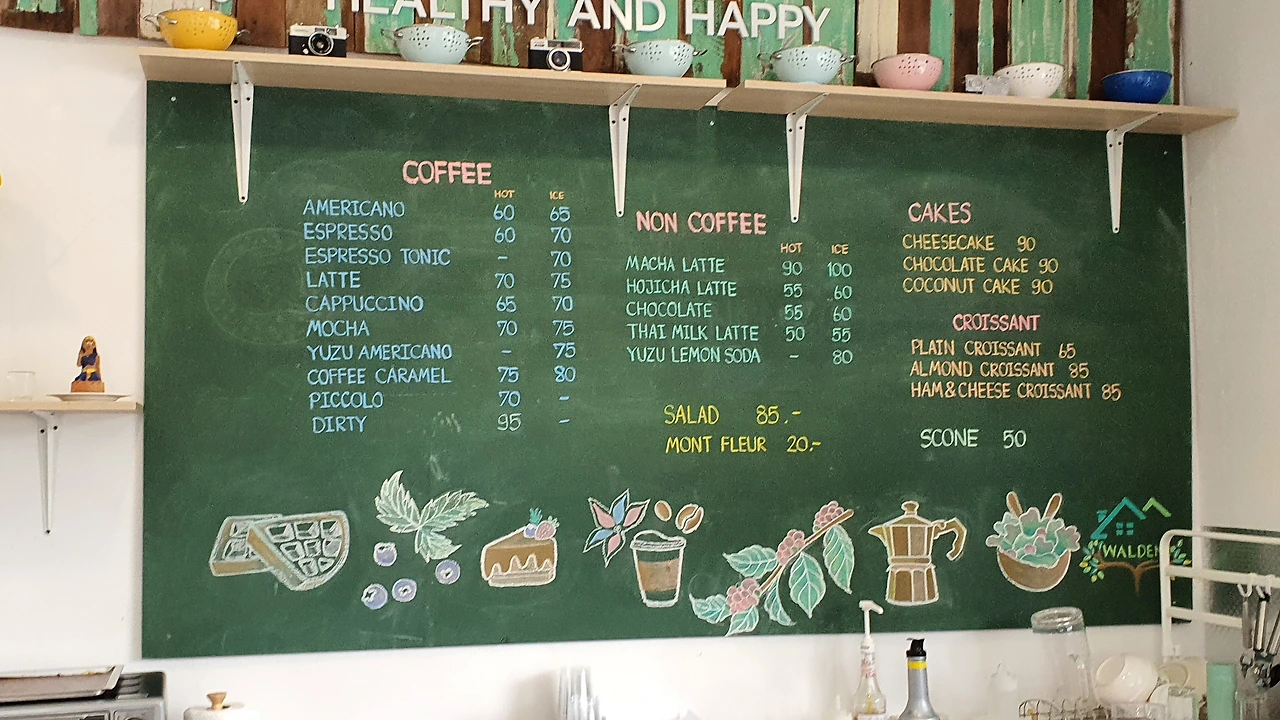 HEALTHY AND HAPPY
COFFEE
HOT ICE
AMERICANO 60 65
ESPRESSO 60 70
ESPRESSO TONIC - 70
LATTE 70 75
CAPPUCCINO 65 70
MOCHA 70 75
YUZU AMERICANO - 75
COFFEE CARAMEL 75 80
PICCOLO 70 -
DIRTY 95 -
NON COFFEE
HOT ICE
MACHA LATTE 90 100
HOJICHA LATTE 55 60
CHOCOLATE 55 60
THAI MILK LATTE 50 55
YUZU LEMON SODA - 80
SALAD 85.-
MONT FLEUR 20.-
CAKES
CHEESECAKE 90
CHOCOLATE CAKE 90
COCONUT CAKE 90
CROISSANT
PLAIN CROISSANT 65
ALMOND CROISSANT 85
HAM&CHEESE CROISSANT 85
SCONE 50
WALDEN